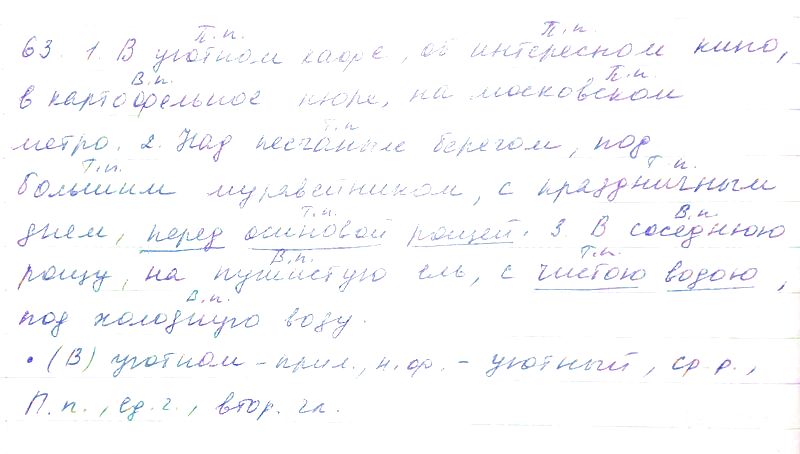 П.п. П.п.
63. 1. В уютном кафе, об интересном кино,
В.п. П.п.
в картофельное пюре, на московском
Т.п.
метро. 2. Над песчаным берегом, под
Т.п. Т.п.
большим муравейником, с праздничным
Т.п. В.п.
днем, перед осиновой рощей. 3. В соседнюю
В.п. Т.п.
рощу, на пушистую ель, с чистою водою,
В.п.
под холодную воду.
• (В) уютном – прил., н.ф. – уютный, ср.р.,
П.п., ед.ч., втор. чл.